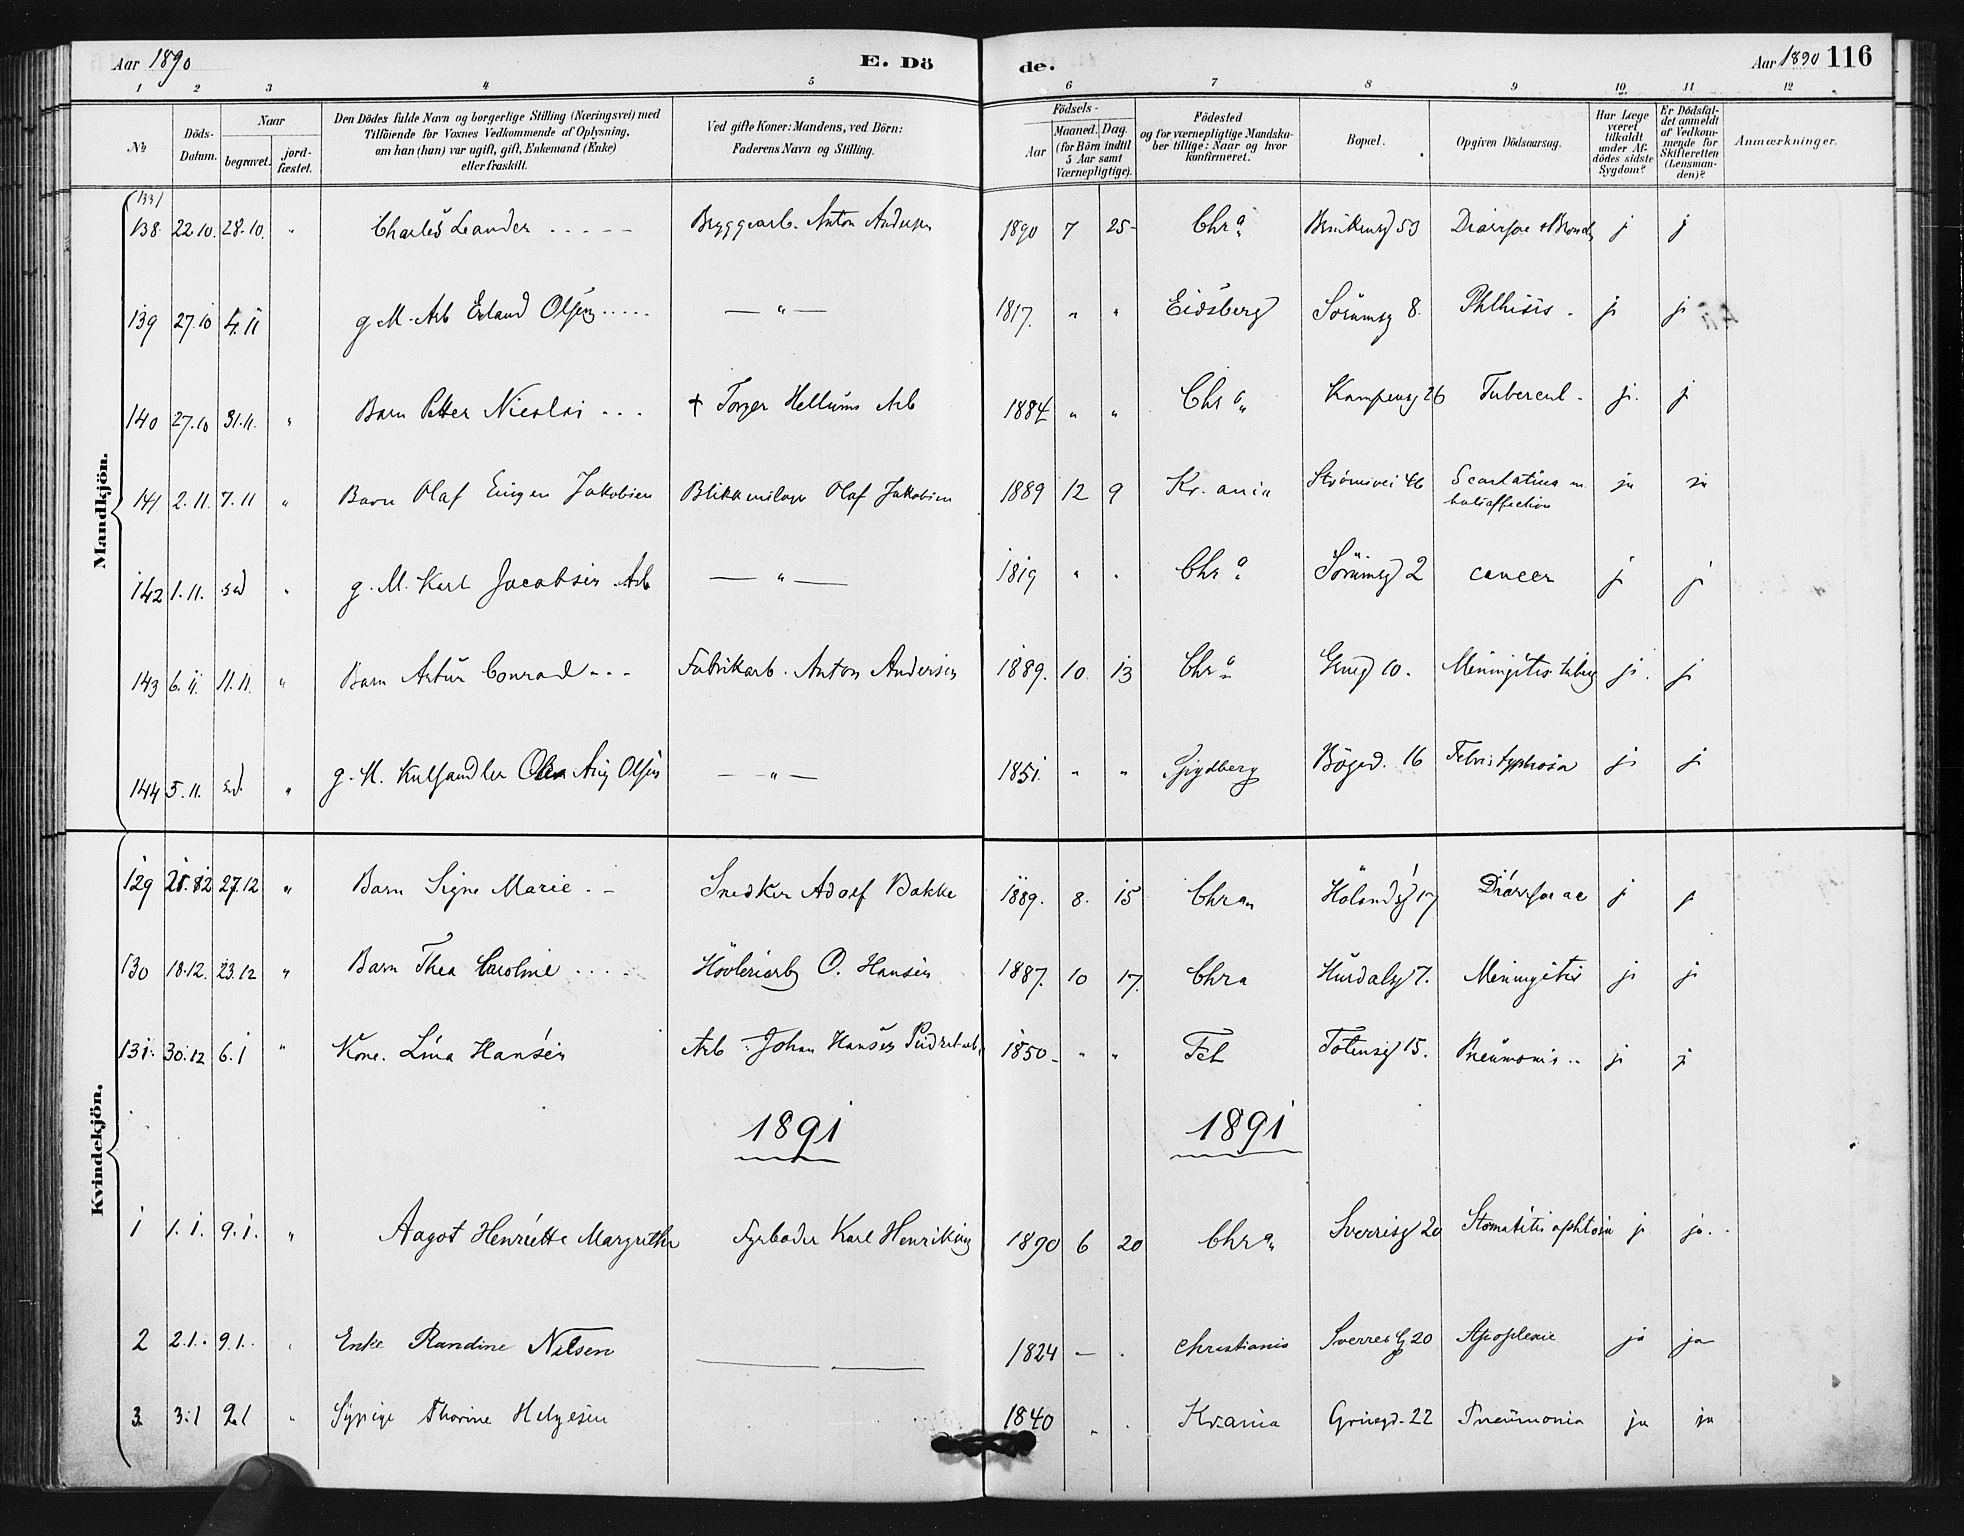 Aar 1890 E. Dö de. Aar 1890 116
1 2 3 4 5 6 7 8 9 10 11 12
No
Döds-Datum.
Naar
begravet.
jord-fæstet.
Den Dödes fulde Navn og borgerlige Stilling (Næringsvei) med
Tilföiende for Voxnes Vedkommende af Oplysning,
om han (hun) var ugift, gift, Enkemand (Enke)
eller fraskilt.
Ved gifte Koner: Mandens, ved Börn:
Faderens Navn og Stilling.
Födsels-
Aar
Maaned. Dag.
(for Börn indtil
5 Aar samt
Værnepligtige).
Födested
og for værnepligtige Mandska-
ber tillige: Naar og hvor
konfirmeret.
Bopæl.
Opgiven Dödsaarsag.
Har Læge
været
tilkaldt
under Af-
dödes sidste
Sygdom?
Er Dödsfal-
det anmeldt
af Vedkom-
mende for
Skifteretten
(Lensman-
den)?
Anmærkninger.
Mandkjön.
138. 22.10. 28.10. " Charles Leander Bryggearb. Anton Andersen 1890 7 25 Chra Brinkensg 53 Diarrhoe + Bronch j j
139 27.10 4.11 g. M. Arb Erland Olsen — " — 1817. " " Eidsberg Sörumsg 8. Phthisis. j j
140 27.10 31.11. " Barn Petter Nicolai + Torger Hellums Arb 1884 " " Chra Kampensg 26 Tubercul. j. j
141 2.11. 7.11 " Barn Olaf Eugen Jakobsen Blikkenslager Olaf Jakobsen 1889 12 9 Kr.ania Strömsvei 46 Scarlatina m. halsaffection ja ja
142 1.11. sd " g. M. Karl Jacobsen Arb — " — 1819 " " Chra Sörumsg 2 cancer j j
143 6.11. 11.11. " Barn Artur Conrad Fabrikarb. Anton Andersen 1889. 10. 13 Chra 10. Meningitis tuberc j. j
144 5.11. sd. " g. M. Kulhandler Aug Olsen — " — 1851. " " Böged. 16 Febris typhosa j j
Kvindekjön.
129 27.12 " Barn Signe Marie Snedker Adolf Bakke 1889. 8. 15 Chra Hölandsg 17 Diarrhoe ac j j
130 18.12. 23.12 " Barn Thea Caroline Hövleriarb O. Hansen 1887. 10 17. Chra Hurdalsg 7. Meningitis j j
131. 30.12 6.1 " Kone. Lina Hansen Arb. Johan Hansen 1850 " " Fet Totensg 15. Pneumonia j j
1891 1891
1 1.1. 9.1. " Aagot Henriette Margrethe Fyrböder Karl Henriksen 1890 6 20 Chra Sverresg 20 Stomatitis aphtosa j ja.
2 2.1. 9.1. Enke Randine Nilsen — — 1824 — Christiania Sverres G 20 Apoplexie ja ja
3. 3.1 9.1 " Sypige Thorine Helgesen 1840 " Kr.ania Grönegd. 22 Pneumonia ja ja